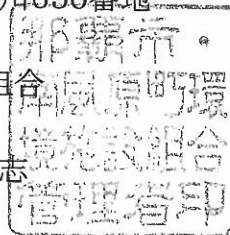 650番地
組合
志
那覇市・
南風原町環
境施設組合
管理者印